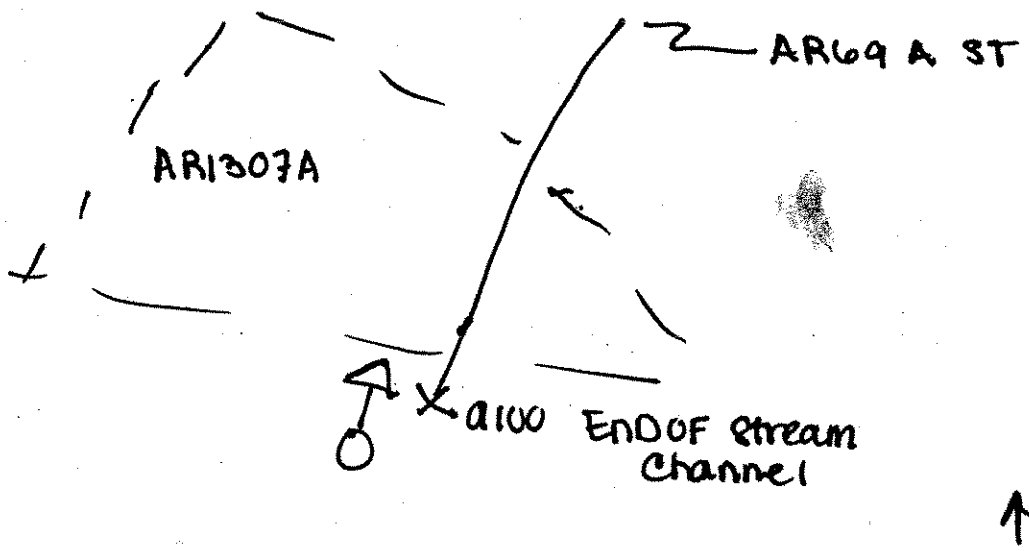 AR69 A ST
AR1307A
a100 EnDOF Stream
Channel